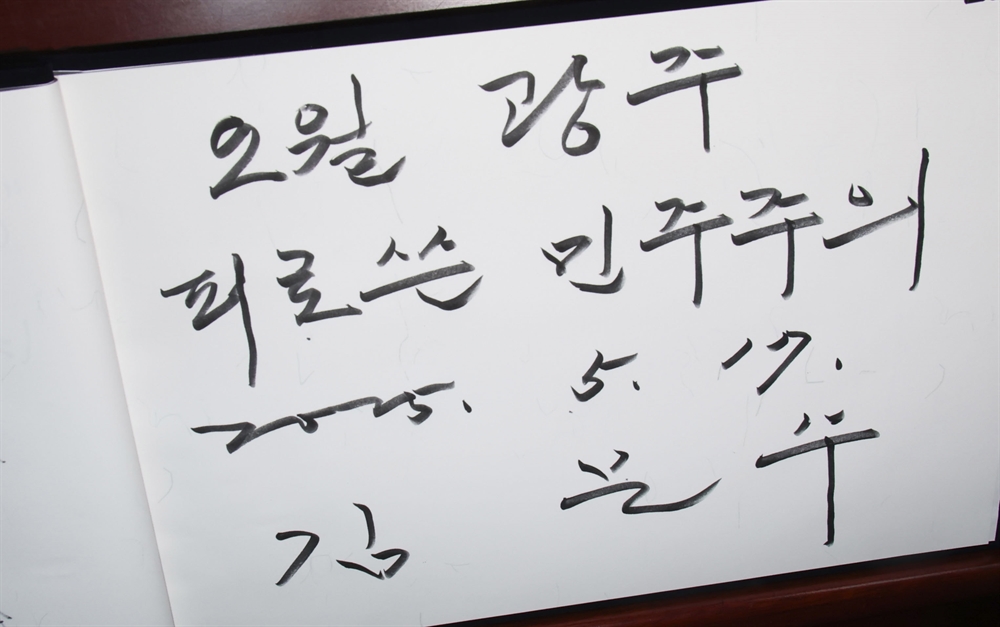 오월 광주
피로쓴 민주주의
2025. 5. 17.
김 문 수